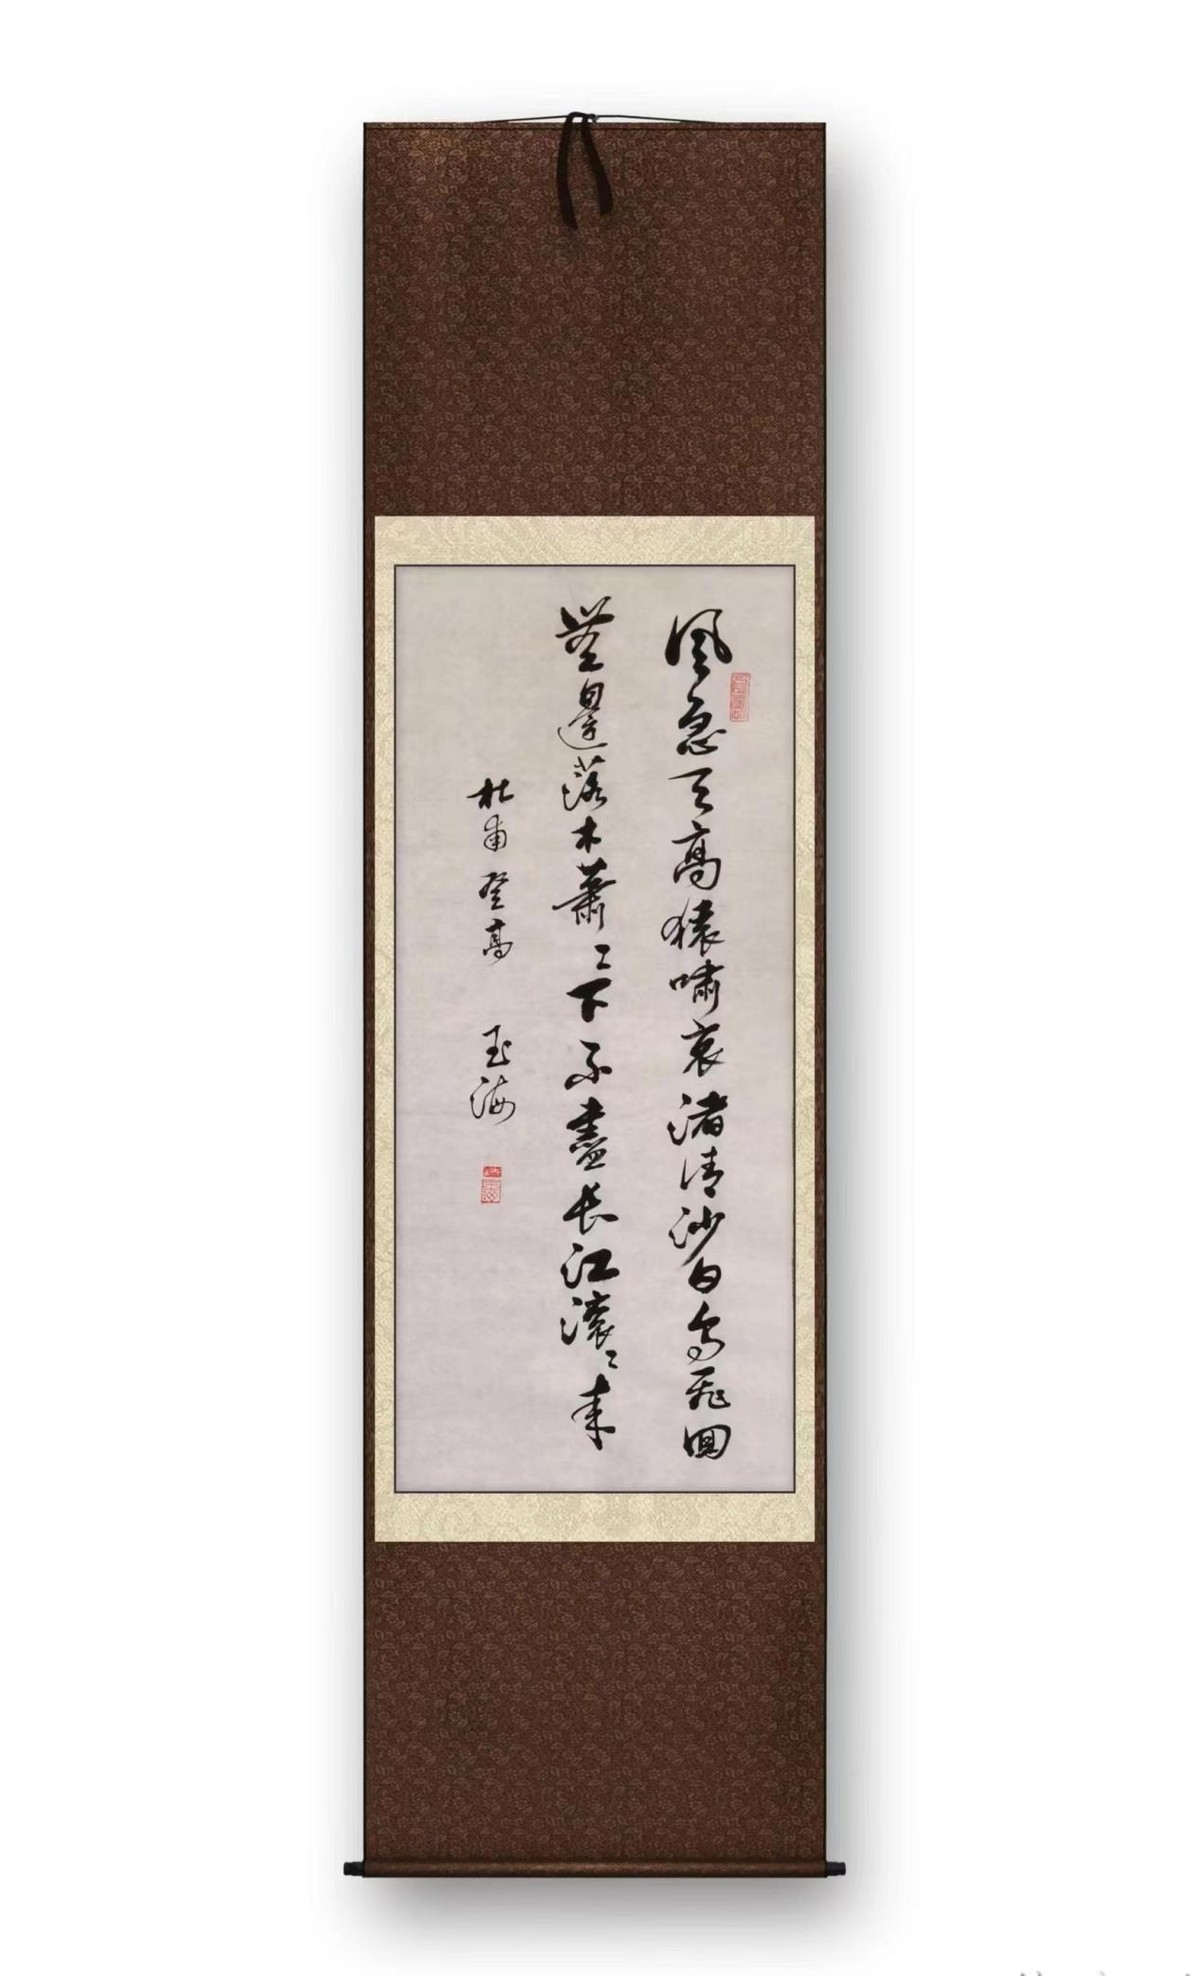 風急天高猿嘯哀渚清沙白鳥飛回
無邊落木蕭〻下不盡長江滾〻來
杜甫登高 玉海